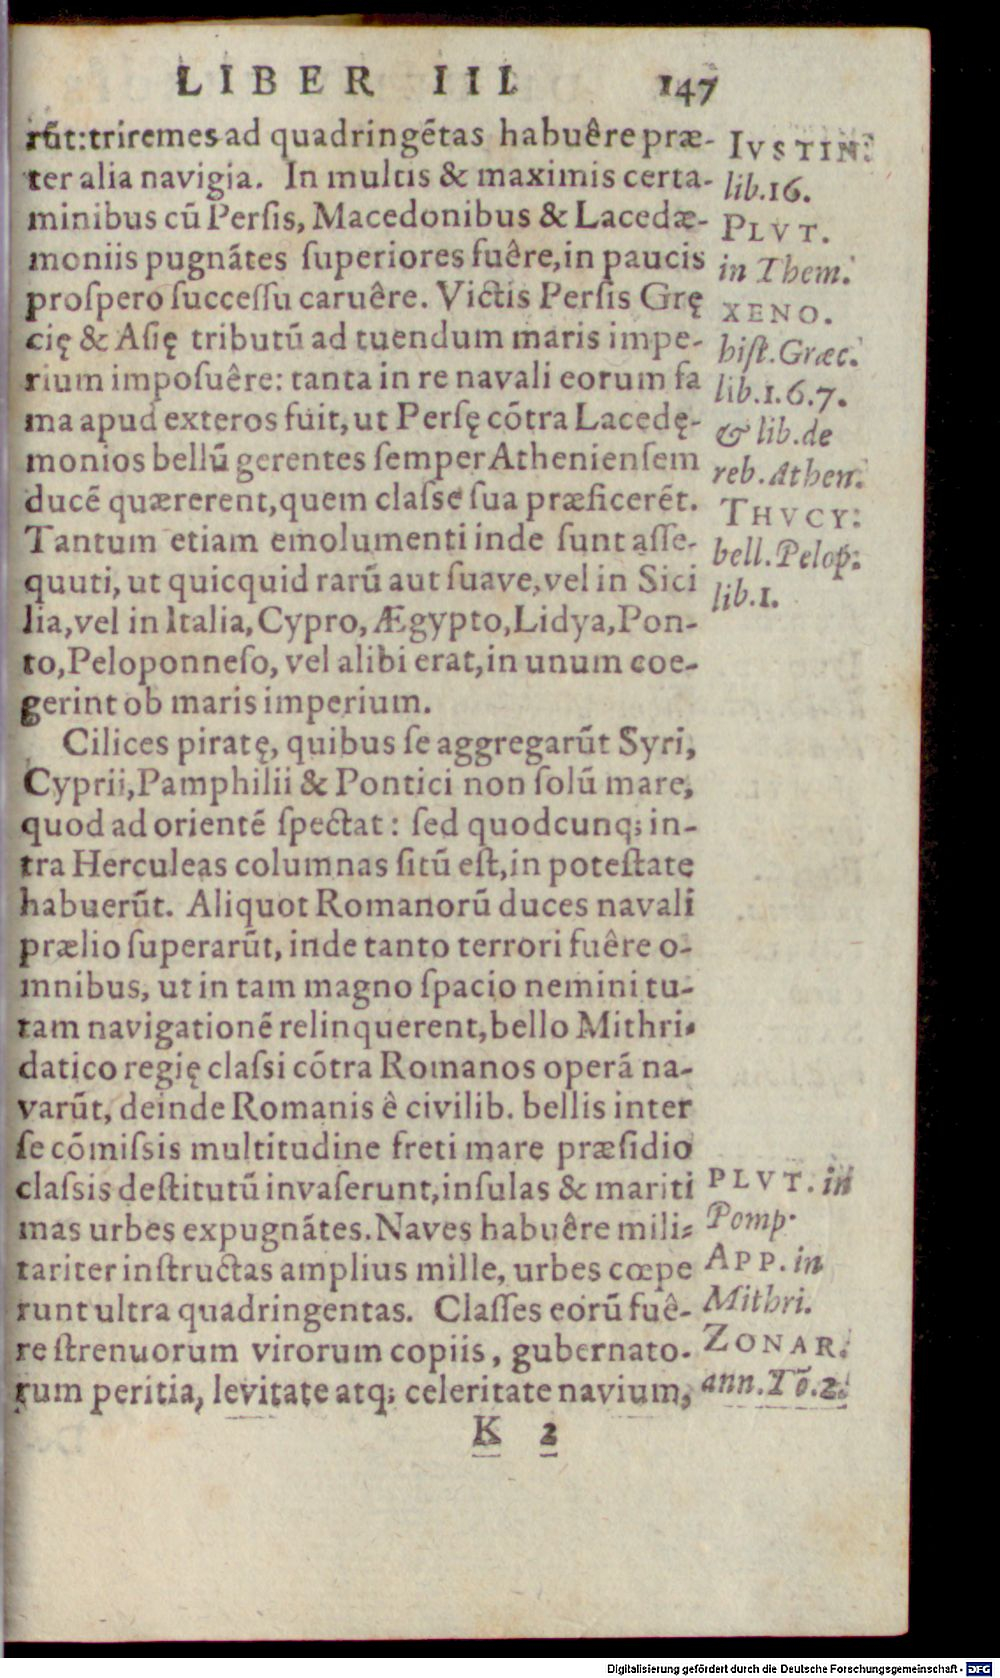 LIBER III. 147
rũt: triremes ad quadringẽtas habuêre præ-
ter alia navigia. In multis & maximis certa-
minibus cũ Persis, Macedonibus & Lacedæ-
moniis pugnãtes superiores fuêre, in paucis
prospero successu caruêre. Victis Persis Grę
cię & Asię tributũ ad tuendum maris impe-
rium imposuêre: tanta in re navali eorum fa
ma apud exteros fuit, ut Persę cõtra Lacedę-
monios bellũ gerentes semper Atheniensem
ducẽ quærerent, quem classe sua præficerẽt.
Tantum etiam emolumenti inde sunt asse-
quuti, ut quicquid rarũ aut suave, vel in Sici
lia, vel in Italia, Cypro, Ægypto, Lidya, Pon-
to, Peloponneso, vel alibi erat, in unum coe-
gerint ob maris imperium.
IVSTIN.
lib. 16.
PLVT.
in Them.
XENO.
hist. Græc.
lib. 1. 6. 7.
& lib. de
reb. Athen.
THVCY:
bell. Pelop:
lib. 1.
Cilices piratę, quibus se aggregarũt Syri,
Cyprii, Pamphilii & Pontici non solũ mare,
quod ad orientẽ spectat: sed quodcunq; in-
tra Herculeas columnas sitũ est, in potestate
habuerũt. Aliquot Romanorũ duces navali
prælio superarũt, inde tanto terrori fuêre o-
mnibus, ut in tam magno spacio nemini tu-
tam navigationẽ relinquerent, bello Mithri-
datico regię classi cõtra Romanos operã na-
varũt, deinde Romanis ê civilib. bellis inter
se cõmissis multitudine freti mare præsidio
classis destitutũ invaserunt, insulas & mariti
mas urbes expugnãtes. Naves habuêre mili-
tariter instructas amplius mille, urbes cœpe
runt ultra quadringentas. Classes eorũ fuê-
re strenuorum virorum copiis, gubernato-
rum peritia, levitate atq; celeritate navium,
PLVT. in
Pomp.
APP. in
Mithri.
ZONAR.
ann. Tõ. 2.
K 2
Digitalisierung gefördert durch die Deutsche Forschungsgemeinschaft - DFG